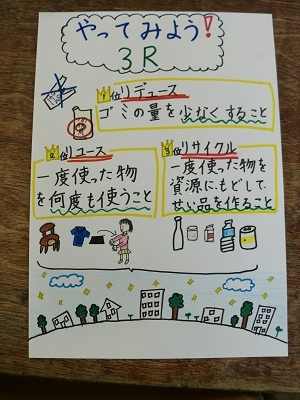 やってみよう!
3R
1位リデュース
ゴミの量を少なくすること
2位リユース
一度使った物
を何度も使うこと
3位リサイクル
一度使った物を
資源にもどして、
せい品を作ること